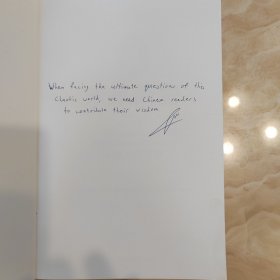 When facing the ultimate questions of this
chaotic world, we need Chinese readers
to contribute their wisdom